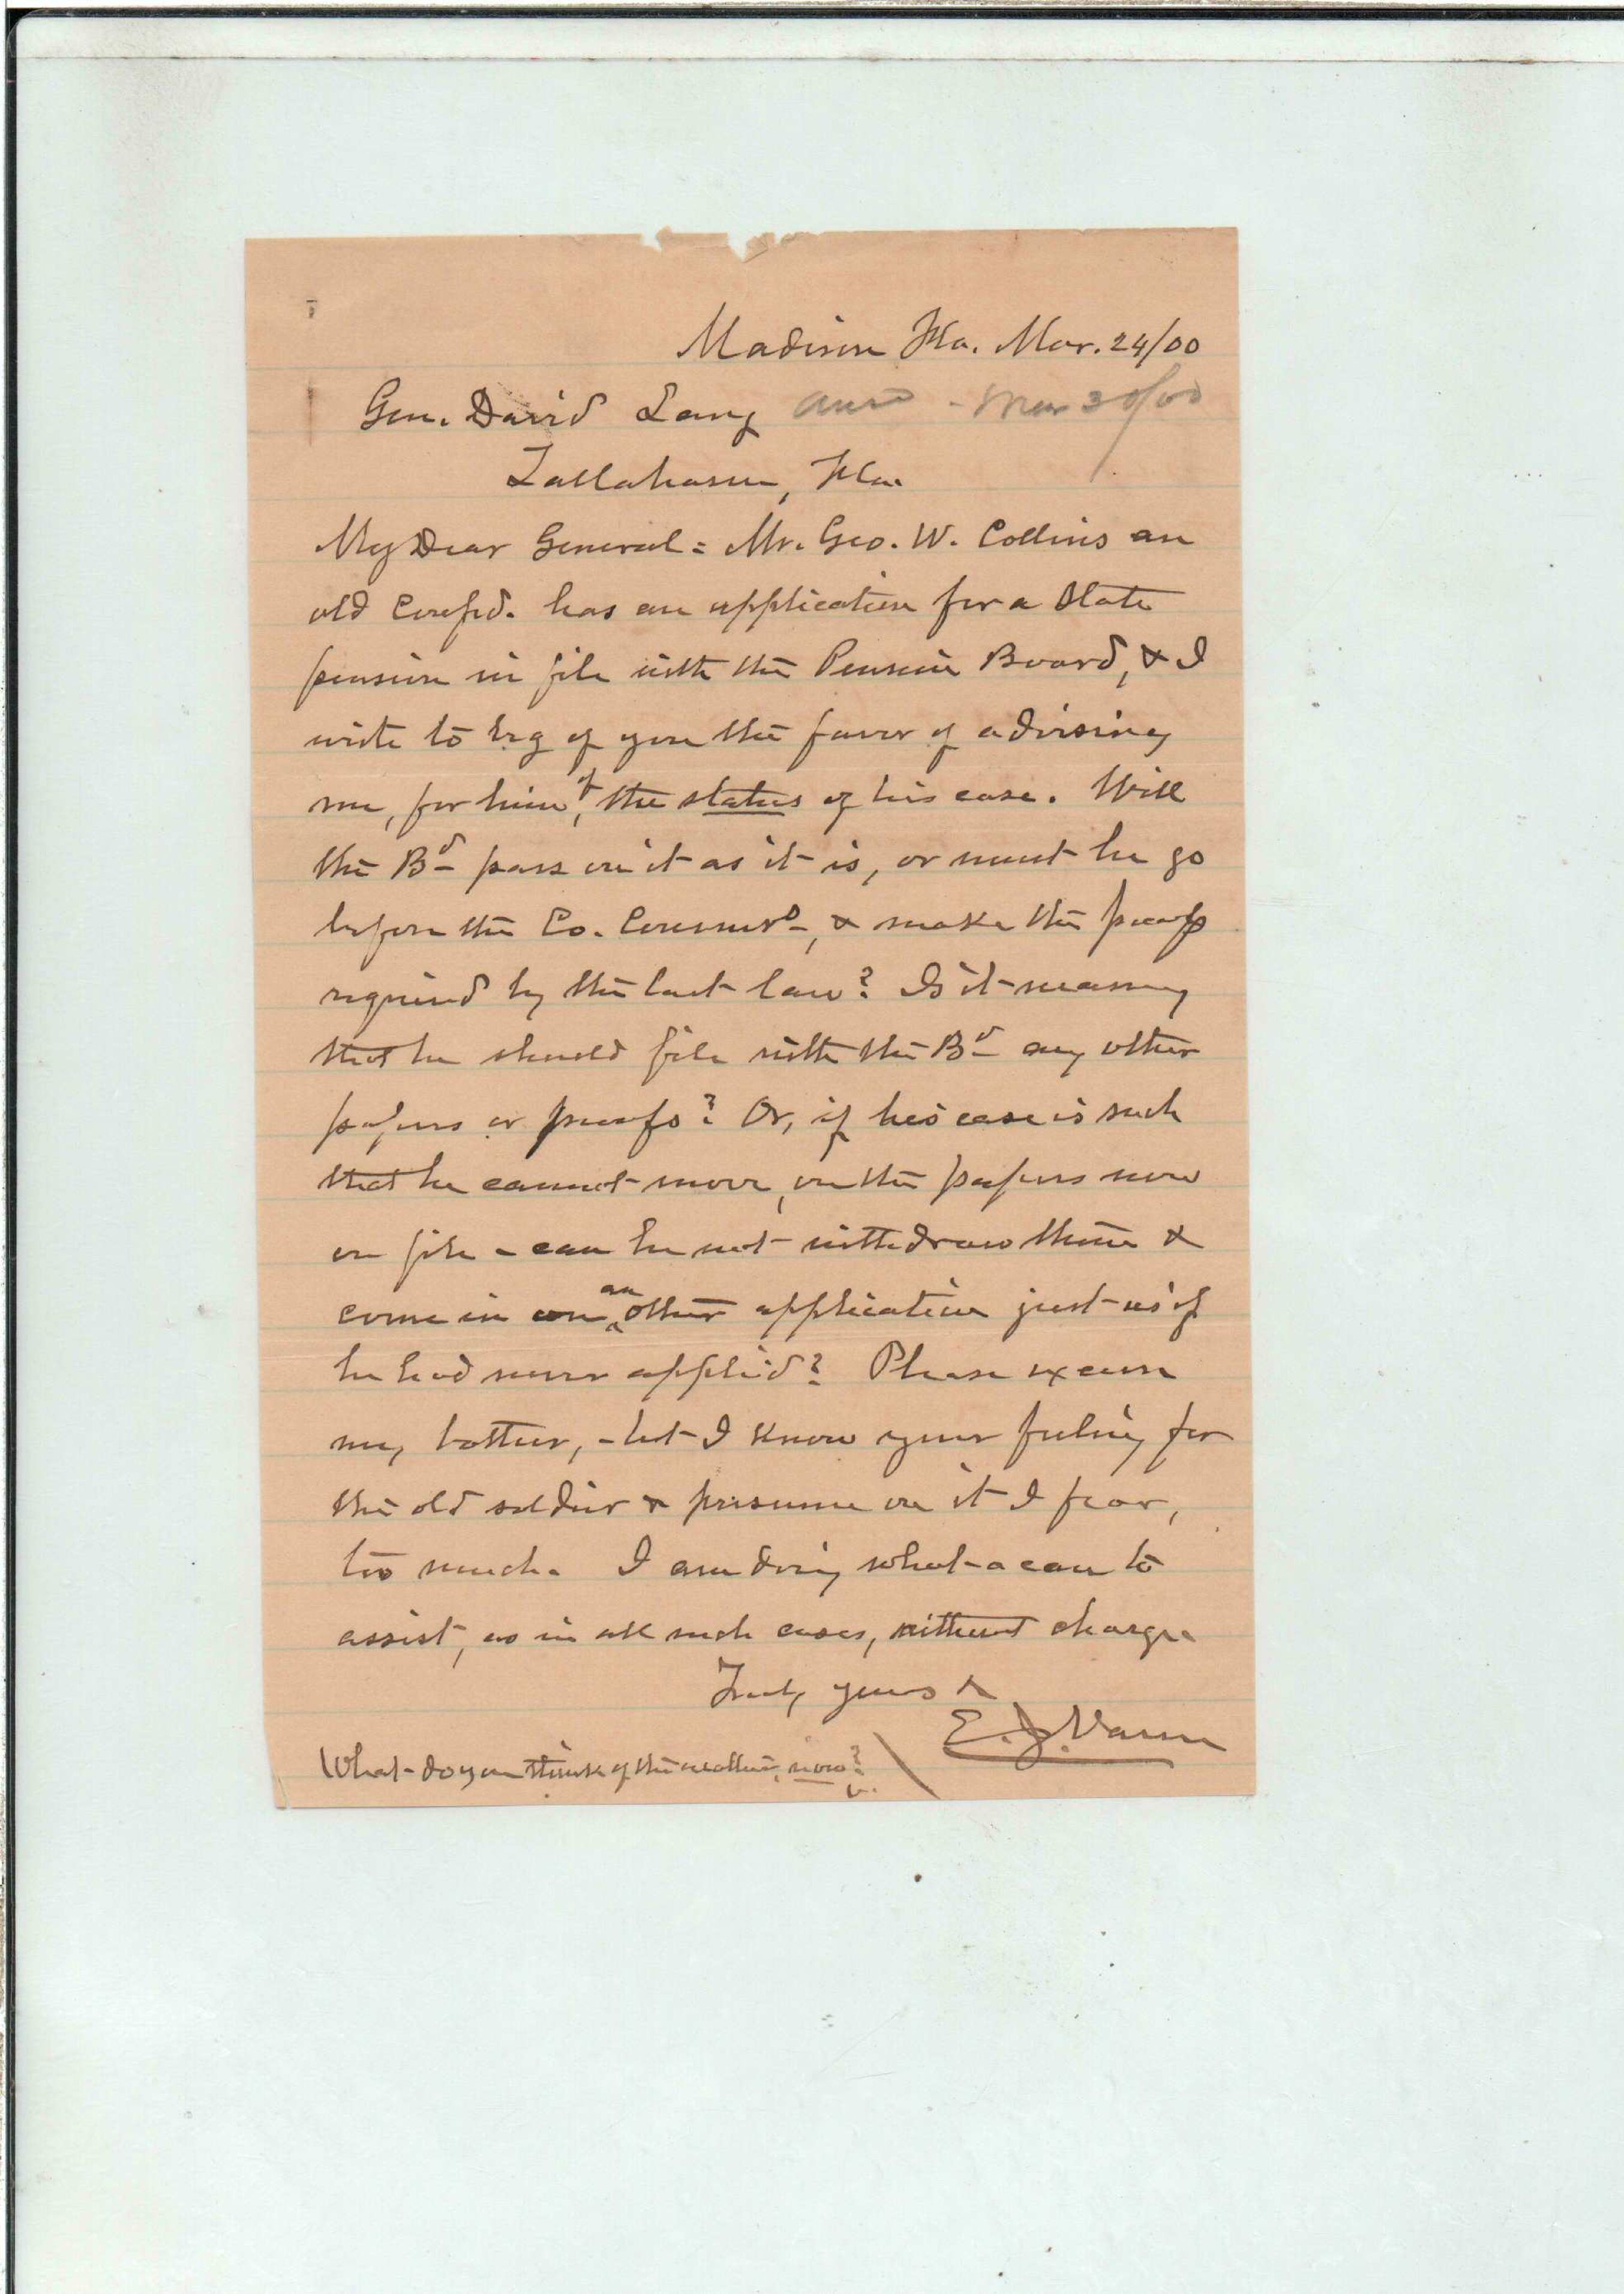 Madison Fla. Mar. 24/00
Gen. David Lang Ansd - Mar 30/00
Tallahassee, Fla.
My Dear General: Mr. Geo. W. Collins an
old Confed. has an application for a State
pension in file with the Pension Board, & I
write to beg of you the favor of advising
me, for him, of the status of his case. Will
the Bd pass on it as it is, or must he go
before the Co. Commrs, & make the proofs
required by the last law? Is it necessary
that he should file with the Bd any other
papers or proofs? Or, if his case is such
that he cannot move, on the papers now
on file - can he not withdraw them &
come in on another application just as if
he had never applied? Please excuse
my bother, - but I know your feeling for
the old soldier & presume on it I fear,
too much. I am doing what a can to
assist, as in all such cases, without charge.
Truly yours
E. J. Vann
What do you think of the weather, now?
V.